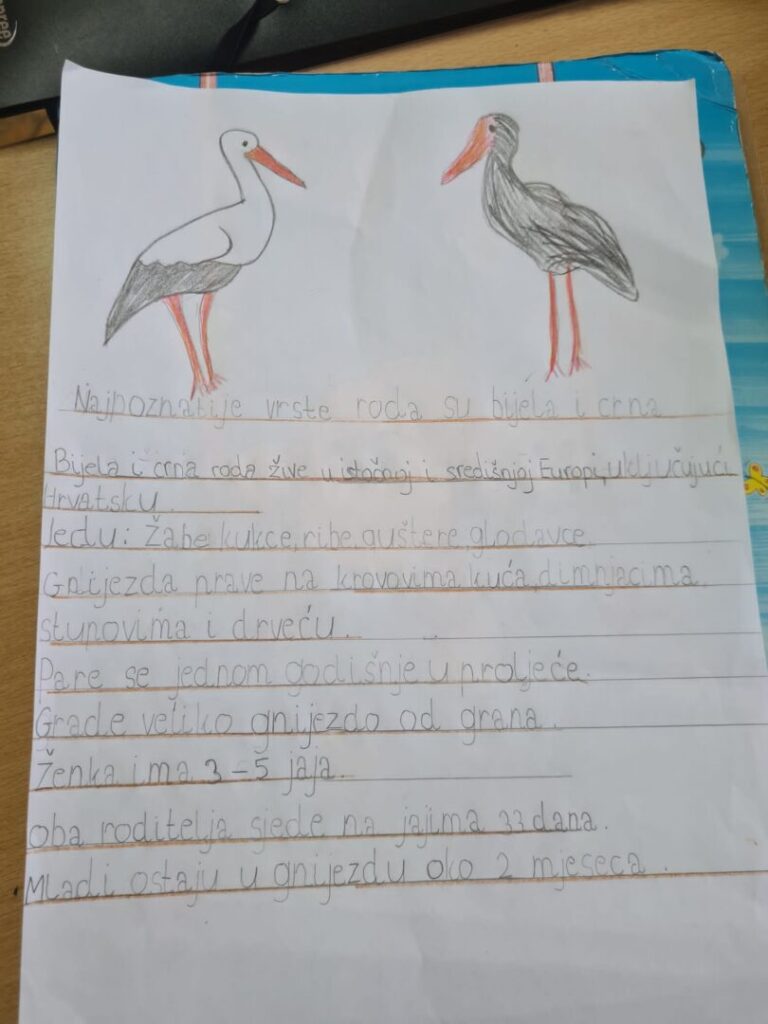 Najpoznatije vrste roda su bijela i crna
Bijela i crna roda žive u istočnoj i središnjoj Europi, uključujući
Hrvatsku.
Jedu: žabe kukce, ribe, guštere, glodavce.
Gnijezda prave na krovovima kuća, dimnjacima
stupovima i drveću.
Pare se jednom godišnje u proljeće.
Grade veliko gnijezdo od grana.
Ženka ima 3-5 jaja.
Oba roditelja sjede na jajima 33 dana.
Mladi ostaju u gnijezdu oko 2 mjeseca.